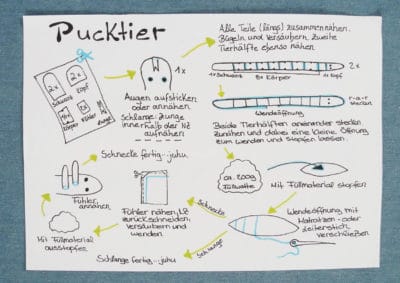 Pucktier
2x
Schwanz
Kopf
4x
2x
Körper
Fühler
Zunge
1x
Augen aufsticken
oder annähen
Schlange: Zunge
innerhalb der NZ
aufnähen
Alle Teile (längs) zusammennähen.
Bügeln und Versäubern, zweite
Tierhälfte ebenso nähen
2x
1x Schwanz
8x Körper
1x Kopf
r-a-r
stecken
Wendeöffnung
Beide Tierhälften aneinander stecken
zunähen und dabei eine kleine Öffnung
zum wenden und stopfen lassen.
ca. 200g
Füllwatte
Mit Füllmaterial stopfen
Wendeöffnung mit
Matratzen- oder
Leiterstich
verschließen
Schnecke
Schlange
Schlange fertig...juhu
Fühler nähen, NZ
zurückschneiden,
versäubern und
wenden
Mit Füllmaterial
ausstopfen
Fühler
annähen
Schnecke fertig...juhu